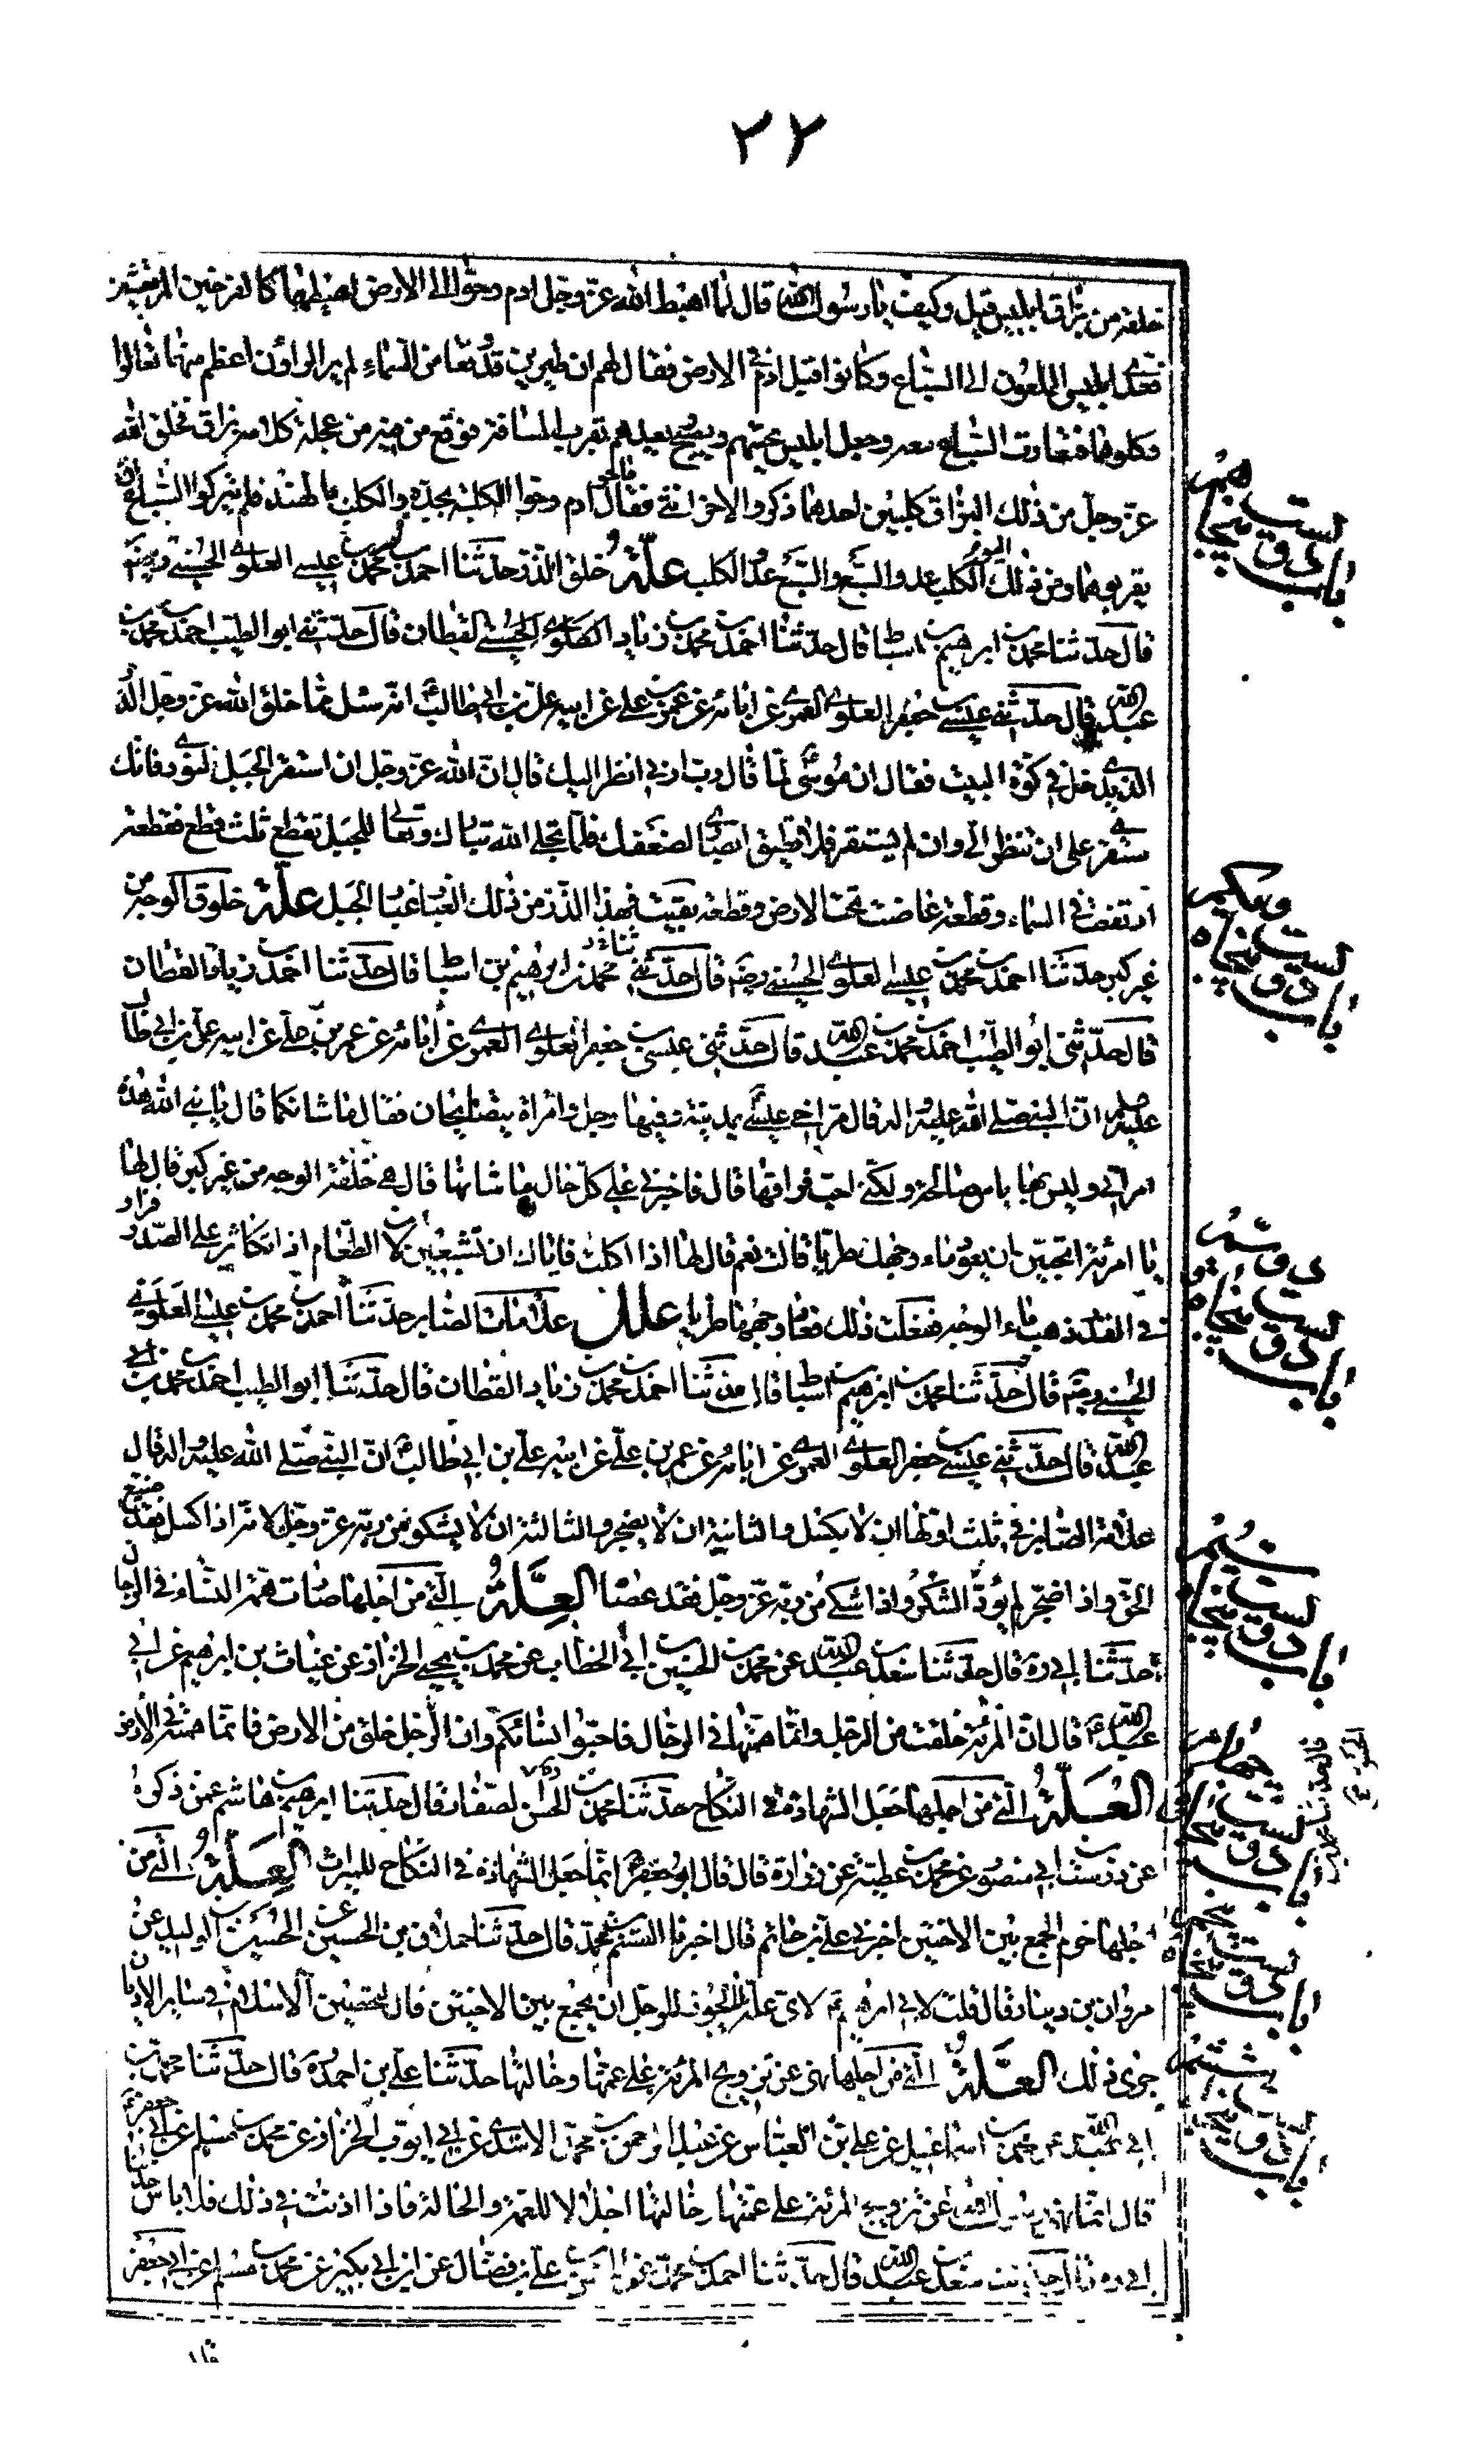 ٢٢
خلقه من بزاق ابليس قيل وكيف يا رسول الله قال لما اهبط الله عز وجل ادم وحوا الى الارض اهبطهما كالفرخين المرتعشين
فعدى ابليس الملعون الى السباع وكانوا قبل ادم في الارض فقال لهم ان طيرين قد وقعا من السماء لم ير الراؤن اعظم منهما تعالوا
فكلوهما فتعاوت السباع معه وجعل ابليس يحثهم ويصيح بهم ويعدهم بقرب المسافة فوقع من فيه من عجلة كلامه بزاق فخلق الله
عز وجل من ذلك البزاق كلبين احدهما ذكر والاخر انثى فقاما حول ادم وحوا الكلبة بجده والكلب بالهند فلم يتركوا السباع ان
يقربوهما ومن ذلك اليوم الكلب عدو السبع والسبع عدو الكلب علة خلق الذر حدثنا احمد بن محمد بن عيسى العلوي الحسيني رضه
قال حدثنا محمد بن ابرهيم بن اسباط قال حدثنا احمد بن محمد بن زياد القطان قال حدثني ابو الطيب احمد بن محمد بن
عبد الله قال حدثني عيسى بن جعفر العلوي العمري عن ابائه عن عمر بن علي عن ابيه علي بن ابي طالب ع انه سئل مما خلق الله عز وجل الذر
الذي يدخل في كوة البيت فقال ان موسى ع لما قال رب ارني انظر اليك قال الله عز وجل ان استقر الجبل لنوري فانك
ستقوى على ان تنظر الي وان لم يستقر فلا تطيق ابصاري لضعفك فلما تجلى الله تبارك وتعالى للجبل تقطع ثلث قطع فقطعة
ارتفعت في السماء وقطعة غاضت تحت الارض وقطعة بقيت فهذا الذر من ذلك الغبار غبار الجبل علة خلوق الوجه من
غير كبر حدثنا احمد بن محمد بن عيسى العلوي الحسيني رضه قال حدثني محمد بن ابرهيم بن اسباط قال حدثنا احمد بن زياد القطان
قال حدثني ابو الطيب احمد بن محمد بن عبد الله قال حدثني عيسى بن جعفر العلوي العمري عن ابائه عن عمر بن علي عن ابيه علي بن ابي طالب
عليه السلام ان النبي صلى الله عليه واله قال مر اخي عيسى ع بمدينة وفيها رجل وامراة يتصايحان فقال ما شانكما قال يا نبي الله هذه
امراتي وليس بها باس صالحة ولكني احب فراقها قال فاخبرني على كل حال ما شانها قال هي خلقة الوجه من غير كبر قال لها
يا امرئة اتحبين ان يعود ماء وجهك طريا قالت نعم قال لها اذا اكلت فاياك ان تشبعين لان الطعام اذا تكاثر على الصدر فزاد
في القدر ذهب ماء الوجه ففعلت ذلك فعاد وجهها طريا علل علامات الصابر حدثنا احمد بن محمد بن عيسى العلوي
الحسيني رضه قال حدثنا محمد بن ابرهيم بن اسباط قال حدثنا احمد بن محمد بن زياد القطان قال حدثنا ابو الطيب احمد بن محمد بن
عبد الله قال حدثني عيسى بن جعفر العلوي العمري عن ابائه عن عمر بن علي عن ابيه علي بن ابي طالب ع ان النبي صلى الله عليه واله قال
علامة الصابر في ثلث اولها ان لا يكسل والثانية ان لا يضجر والثالثة ان لا يشكو من ربه عز وجل لانه اذا كسل فقد ضيع
الحق واذا ضجر لم يؤد الشكر واذا شكى من ربه عز وجل فقد عصاه العلة التي من اجلها صارت همة النساء في الرجال
حدثنا ابي ره قال حدثنا سعد بن عبد الله عن محمد بن الحسين بن ابي الخطاب عن محمد بن يحيى الخزاز عن غياث بن ابرهيم عن ابي
عبد الله ع قال ان المرئة خلقت من الرجل وانما همتها في الرجال فاحبوا نسائكم وان الرجل خلق من الارض فانما همته في الارض
العلة التي من اجلها جعل الشهادة في النكاح حدثنا محمد بن الحسن الصفار قال حدثنا ابرهيم بن هاشم عمن ذكره
عن درست بن ابي منصور عن محمد بن عطية عن زرارة قال قال ابو جعفر ع انما جعل الشهادة في النكاح للميراث العلة التي من
اجلها حرم الجمع بين الاختين اخبرني علي بن حاتم قال اخبرنا القسم بن محمد قال حدثنا حمدان بن الحسين عن الحسين بن الوليد عن
مروان بن دينار قال قلت لابي ابرهيم ع لاي علة لا يجوز للرجل ان يجمع بين الاختين قال لتحصين الاسلام في ساير الاديان
جرى ذلك العلة التي من اجلها نهى عن تزويج المرئة على عمتها وخالتها حدثنا علي بن احمد ره قال حدثنا محمد بن
ابي عبد الله عن محمد بن اسماعيل عن علي بن العباس عن عبد الرحمن بن محمد الاسدي عن ابي ايوب الخزاز عن محمد بن مسلم عن ابي جعفر ع
قال انما نهى رسول الله عن تزويج المرئة على عمتها وخالتها اجلالا للعمة والخالة فاذا اذنت في ذلك فلا باس حدثنا
ابي ره قال حدثنا سعد بن عبد الله قال حدثنا احمد بن محمد عن الحسن بن علي بن فضال عن ابن بكير عن محمد بن مسلم عن ابي جعفر
باب دويست و پنجاه
باب دويست و پنجاه و يكم
باب دويست و پنجاه و دويم
باب دويست و پنجاه و سيم
باب دويست و پنجاه و چهارم
باب دويست و پنجاه و پنجم
باب دويست و پنجاه و ششم
قال